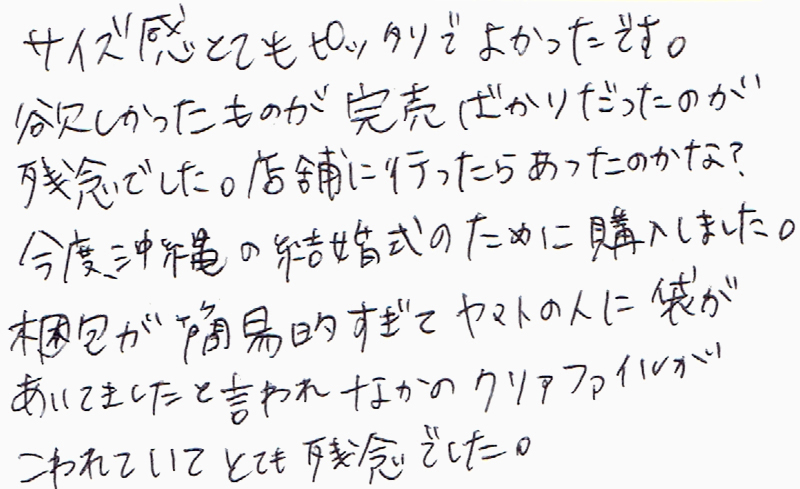 サイズ感とてもピッタリでよかったです。
欲しかったものが完売ばかりだったのが
残念でした。店舗に行ったらあったのかな?
今度、沖縄の結婚式のために購入しました。
梱包が簡易的すぎてヤマトの人に袋が
あいてましたと言われ、なかのクリアファイルが
こわれていてとても残念でした。